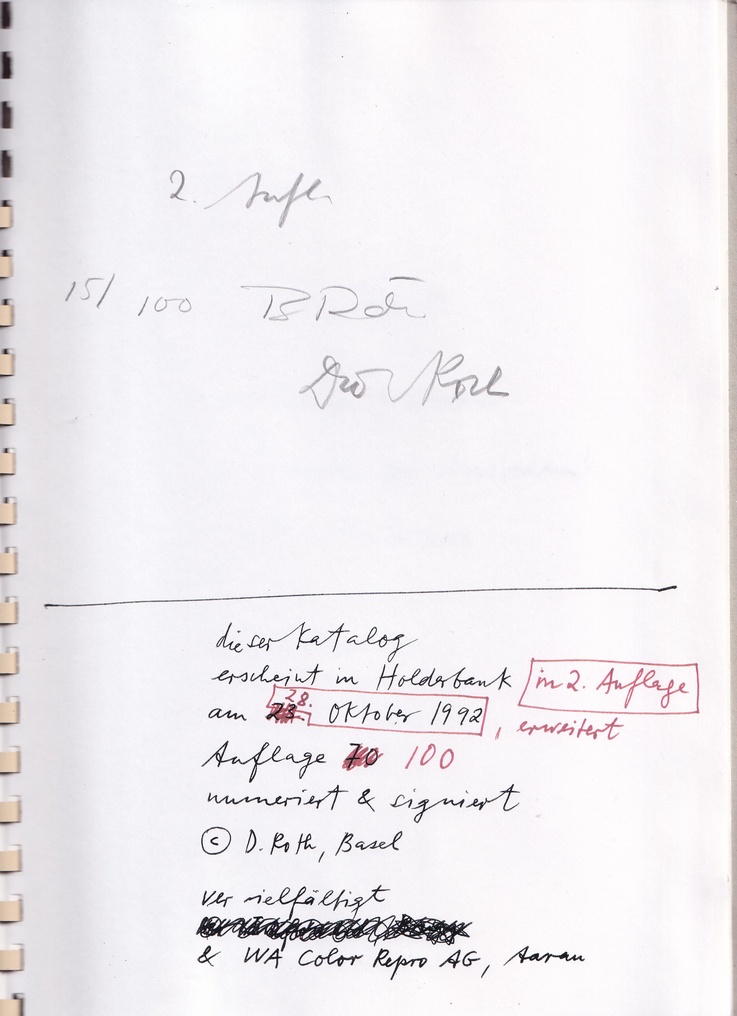 2. Aufl.
15/100 B Roth
Roth
dieser Katalog
erscheint in Holderbank in 2. Auflage
28.
am 23. Oktober 1992, erweitert
Auflage 70 100
numeriert & signiert
© D. Roth, Basel
vervielfältigt
& WA Color Repro AG, Aarau